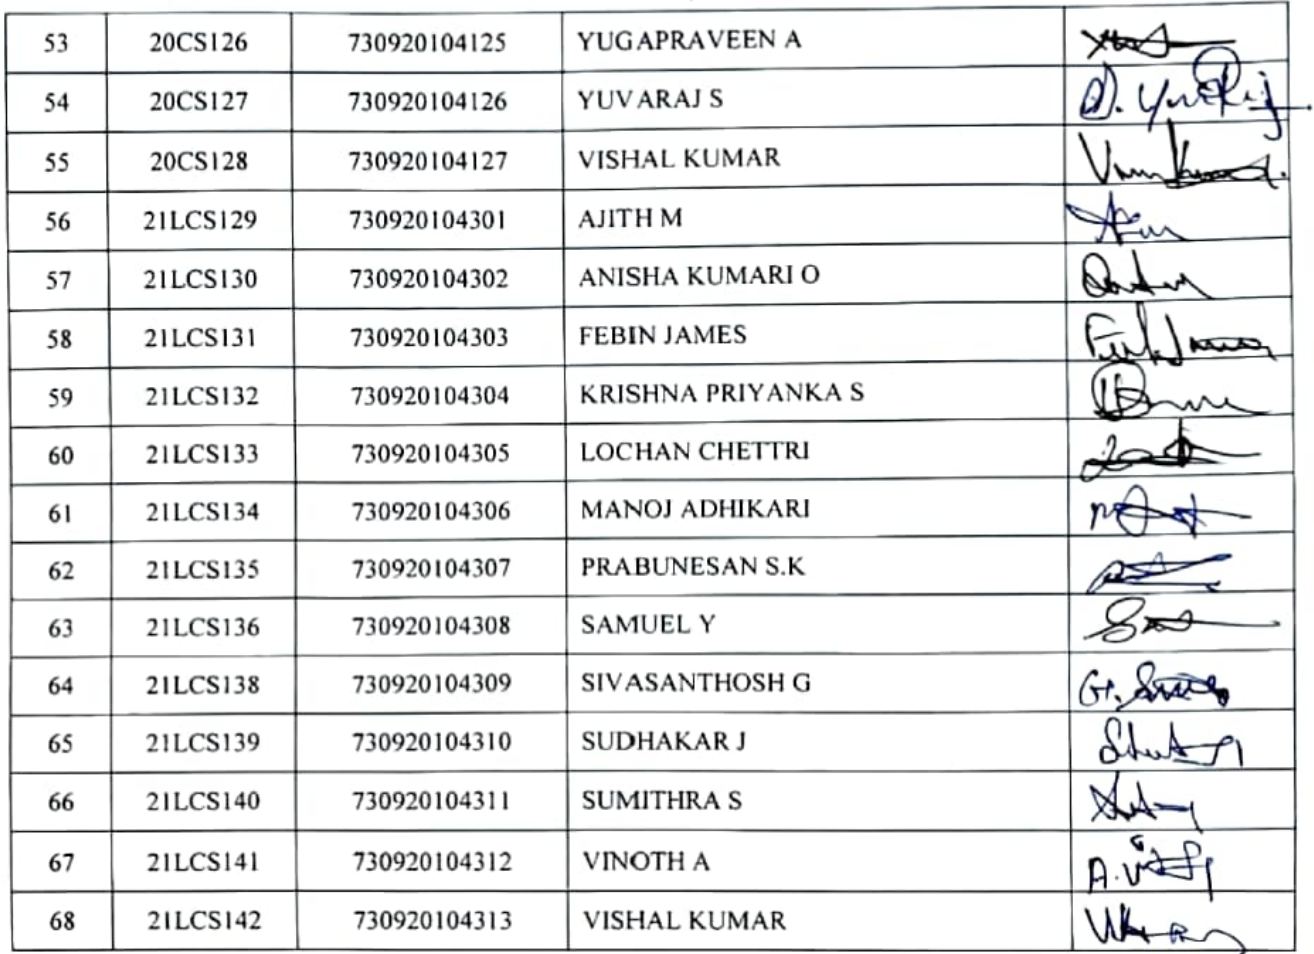 53 20CS126 730920104125 YUGAPRAVEEN A
54 20CS127 730920104126 YUVARAJ S
55 20CS128 730920104127 VISHAL KUMAR
56 21LCS129 730920104301 AJITH M
57 21LCS130 730920104302 ANISHA KUMARI O
58 21LCS131 730920104303 FEBIN JAMES
59 21LCS132 730920104304 KRISHNA PRIYANKA S
60 21LCS133 730920104305 LOCHAN CHETTRI
61 21LCS134 730920104306 MANOJ ADHIKARI
62 21LCS135 730920104307 PRABUNESAN S.K
63 21LCS136 730920104308 SAMUEL Y
64 21LCS138 730920104309 SIVASANTHOSH G
65 21LCS139 730920104310 SUDHAKAR J
66 21LCS140 730920104311 SUMITHRA S
67 21LCS141 730920104312 VINOTH A
68 21LCS142 730920104313 VISHAL KUMAR